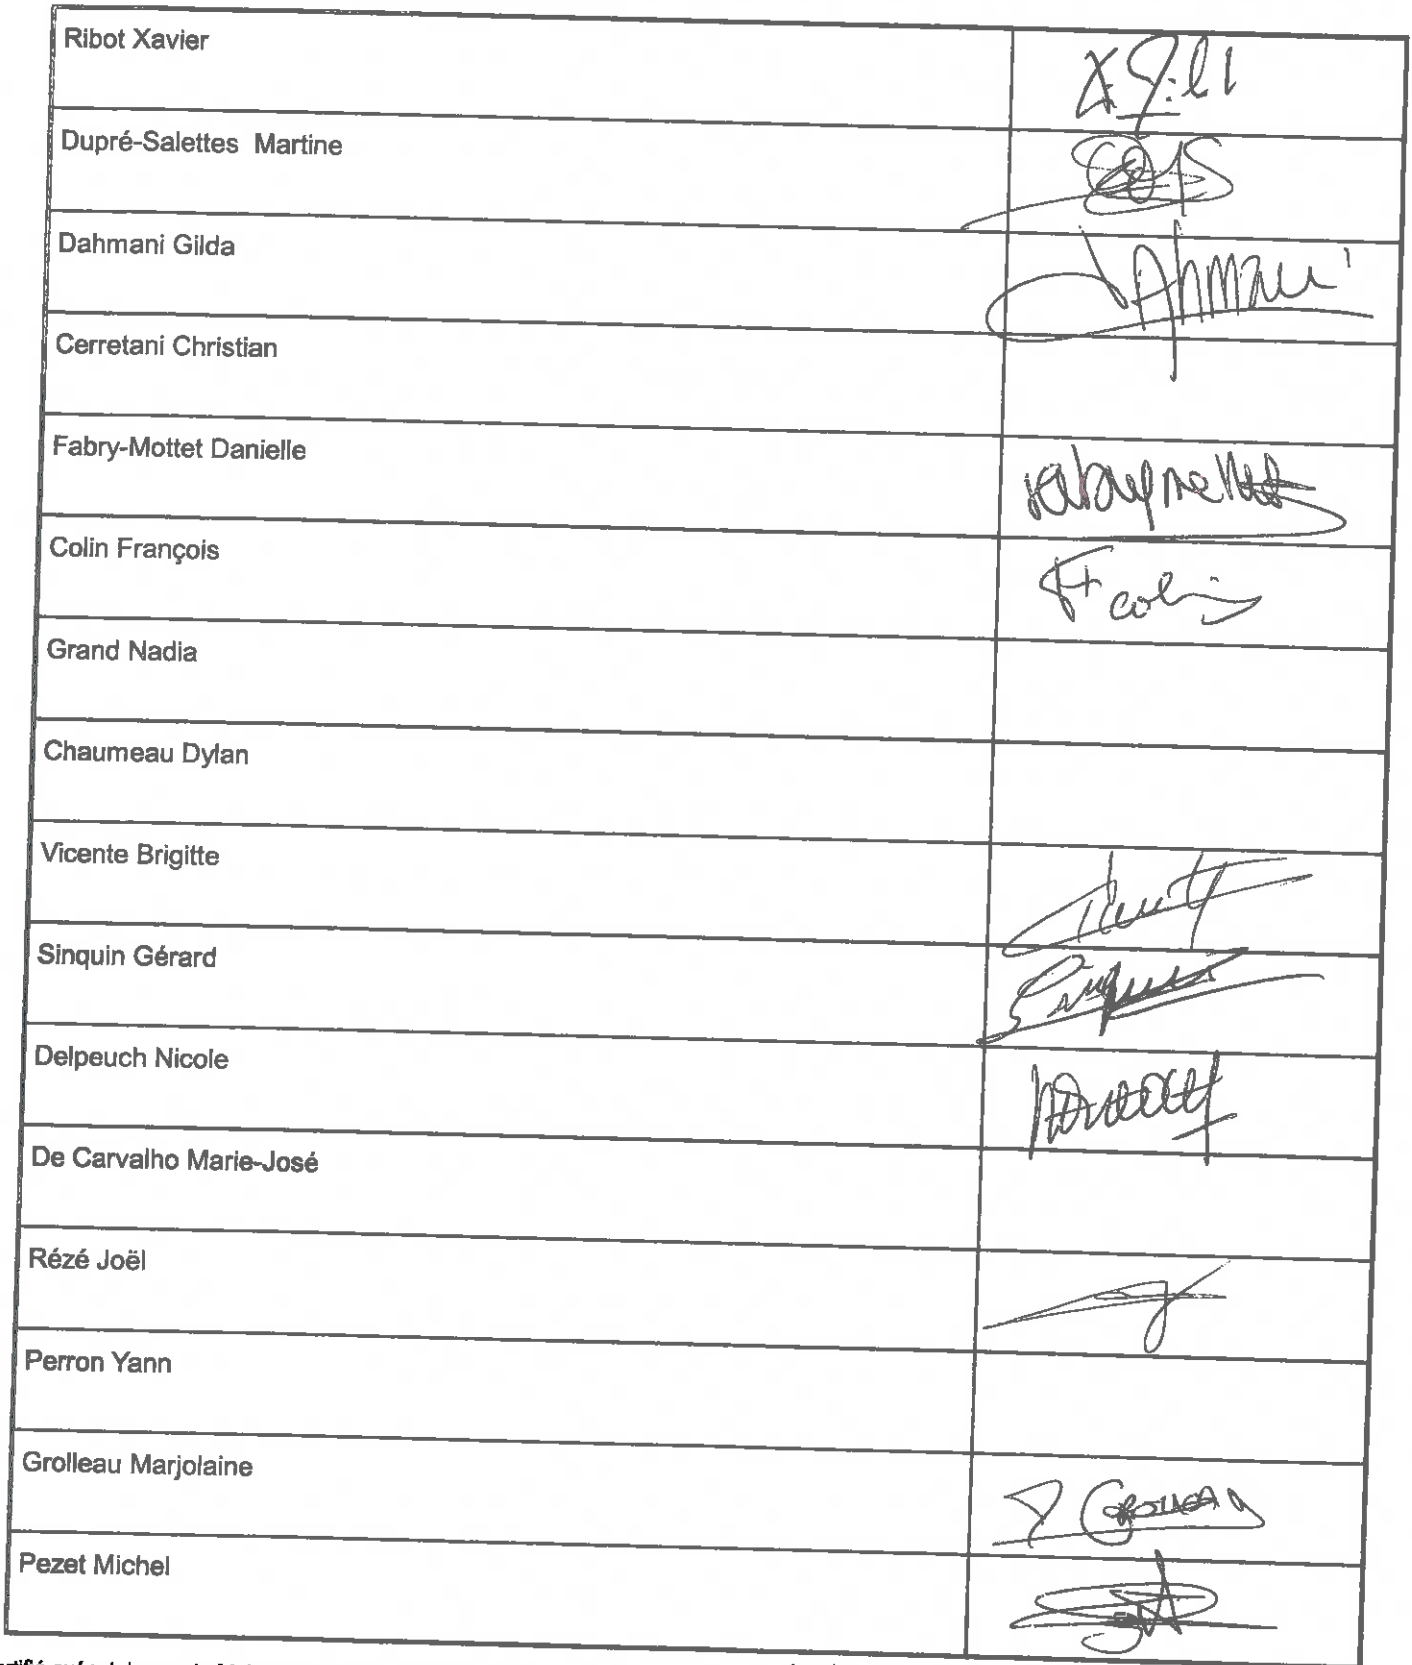 Ribot Xavier
Dupré-Salettes Martine
Dahmani Gilda
Dahmani
Cerretani Christian
Fabry-Mottet Danielle
Colin François
F colin
Grand Nadia
Chaumeau Dylan
Vicente Brigitte
Sinquin Gérard
Sinquin
Delpeuch Nicole
De Carvalho Marie-José
Rézé Joël
Perron Yann
Grolleau Marjolaine
GROLLEAU
Pezet Michel